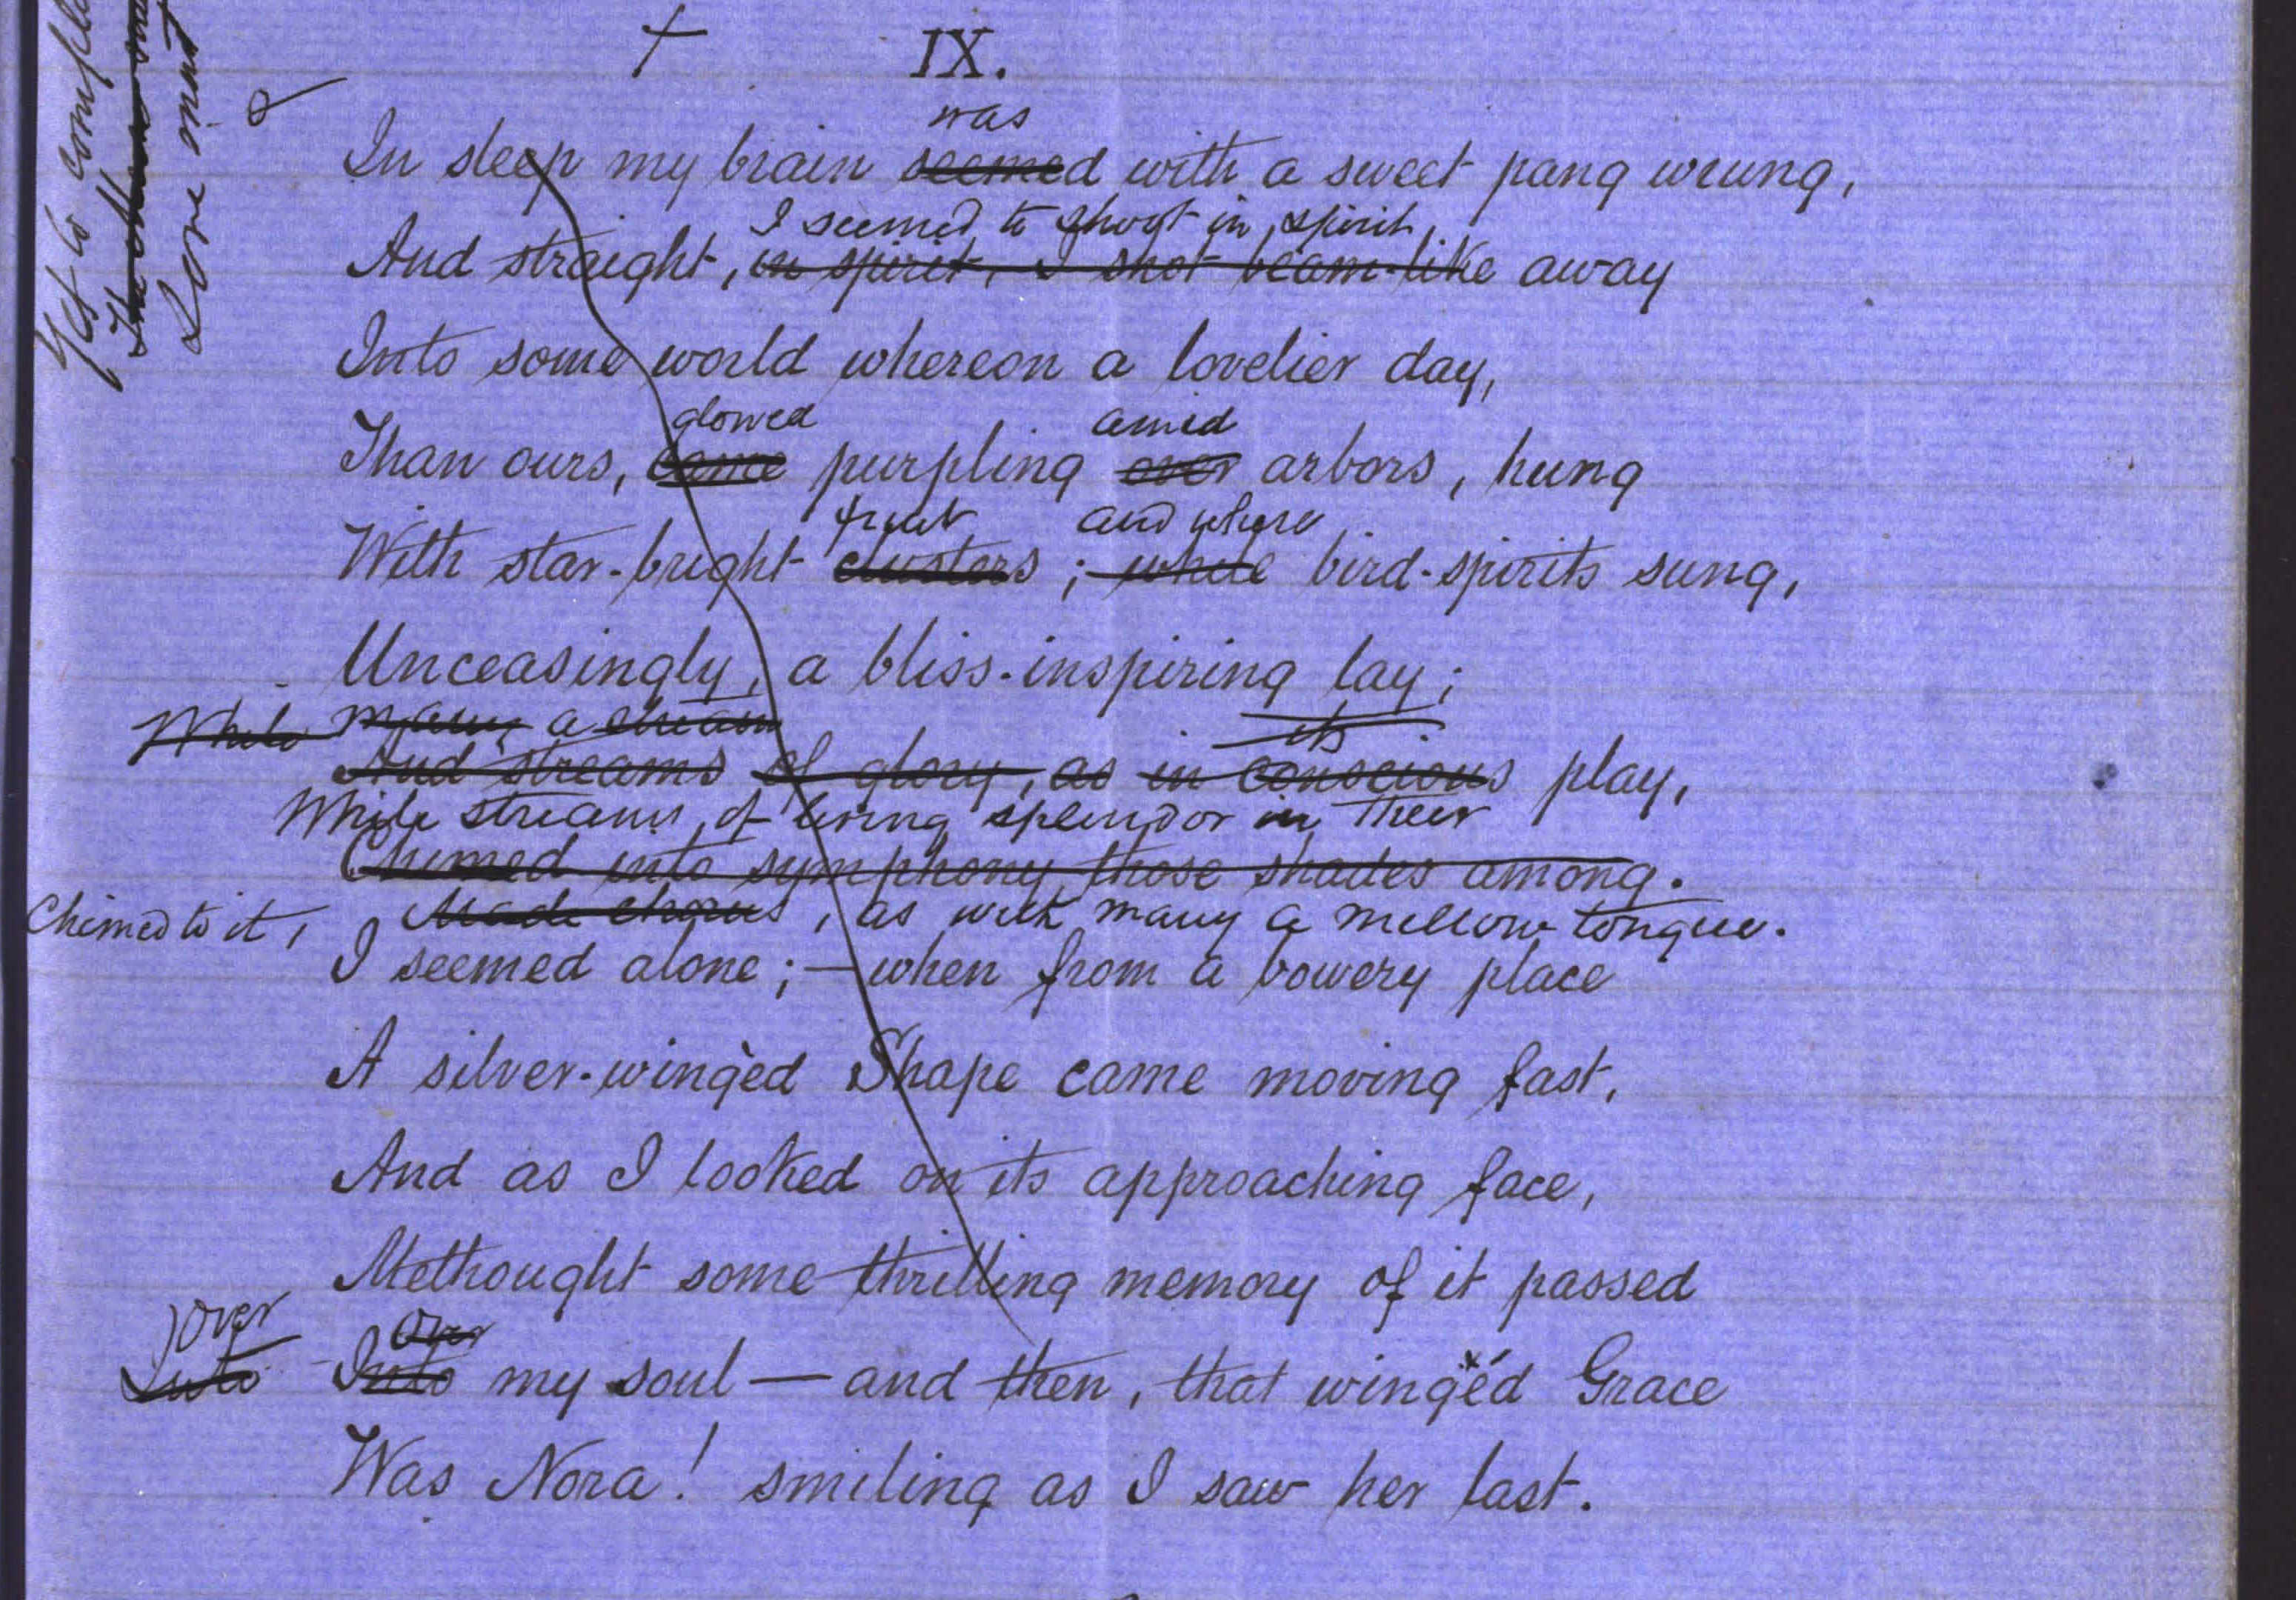 Yet to comple
In other
Love must
IX.
was
In sleep my brain seemed with a sweet pang wrung,
I seemed to shoot in spirit,
And straight, in spirit, I shot beam-like away
Into some world whereon a lovelier day,
glowed amid
Than ours, came purpling over arbors, hung
fruit and where
With star-bright clusters; while bird-spirits sung,
Unceasingly, a bliss-inspiring lay;
While many a stream its
And streams of glory, as in conscious play,
While streams of living splendor in their
Chimed into symphony those shades among.
Chimed to it, Made chorus, as with many a mellow tongue.
I seemed alone;—when from a bowery place
A silver-wingèd Shape came moving fast,
And as I looked on its approaching face,
Methought some thrilling memory of it passed
Over Over
Into Into my soul — and then, that wingéd Grace
Was Nora! smiling as I saw her last.